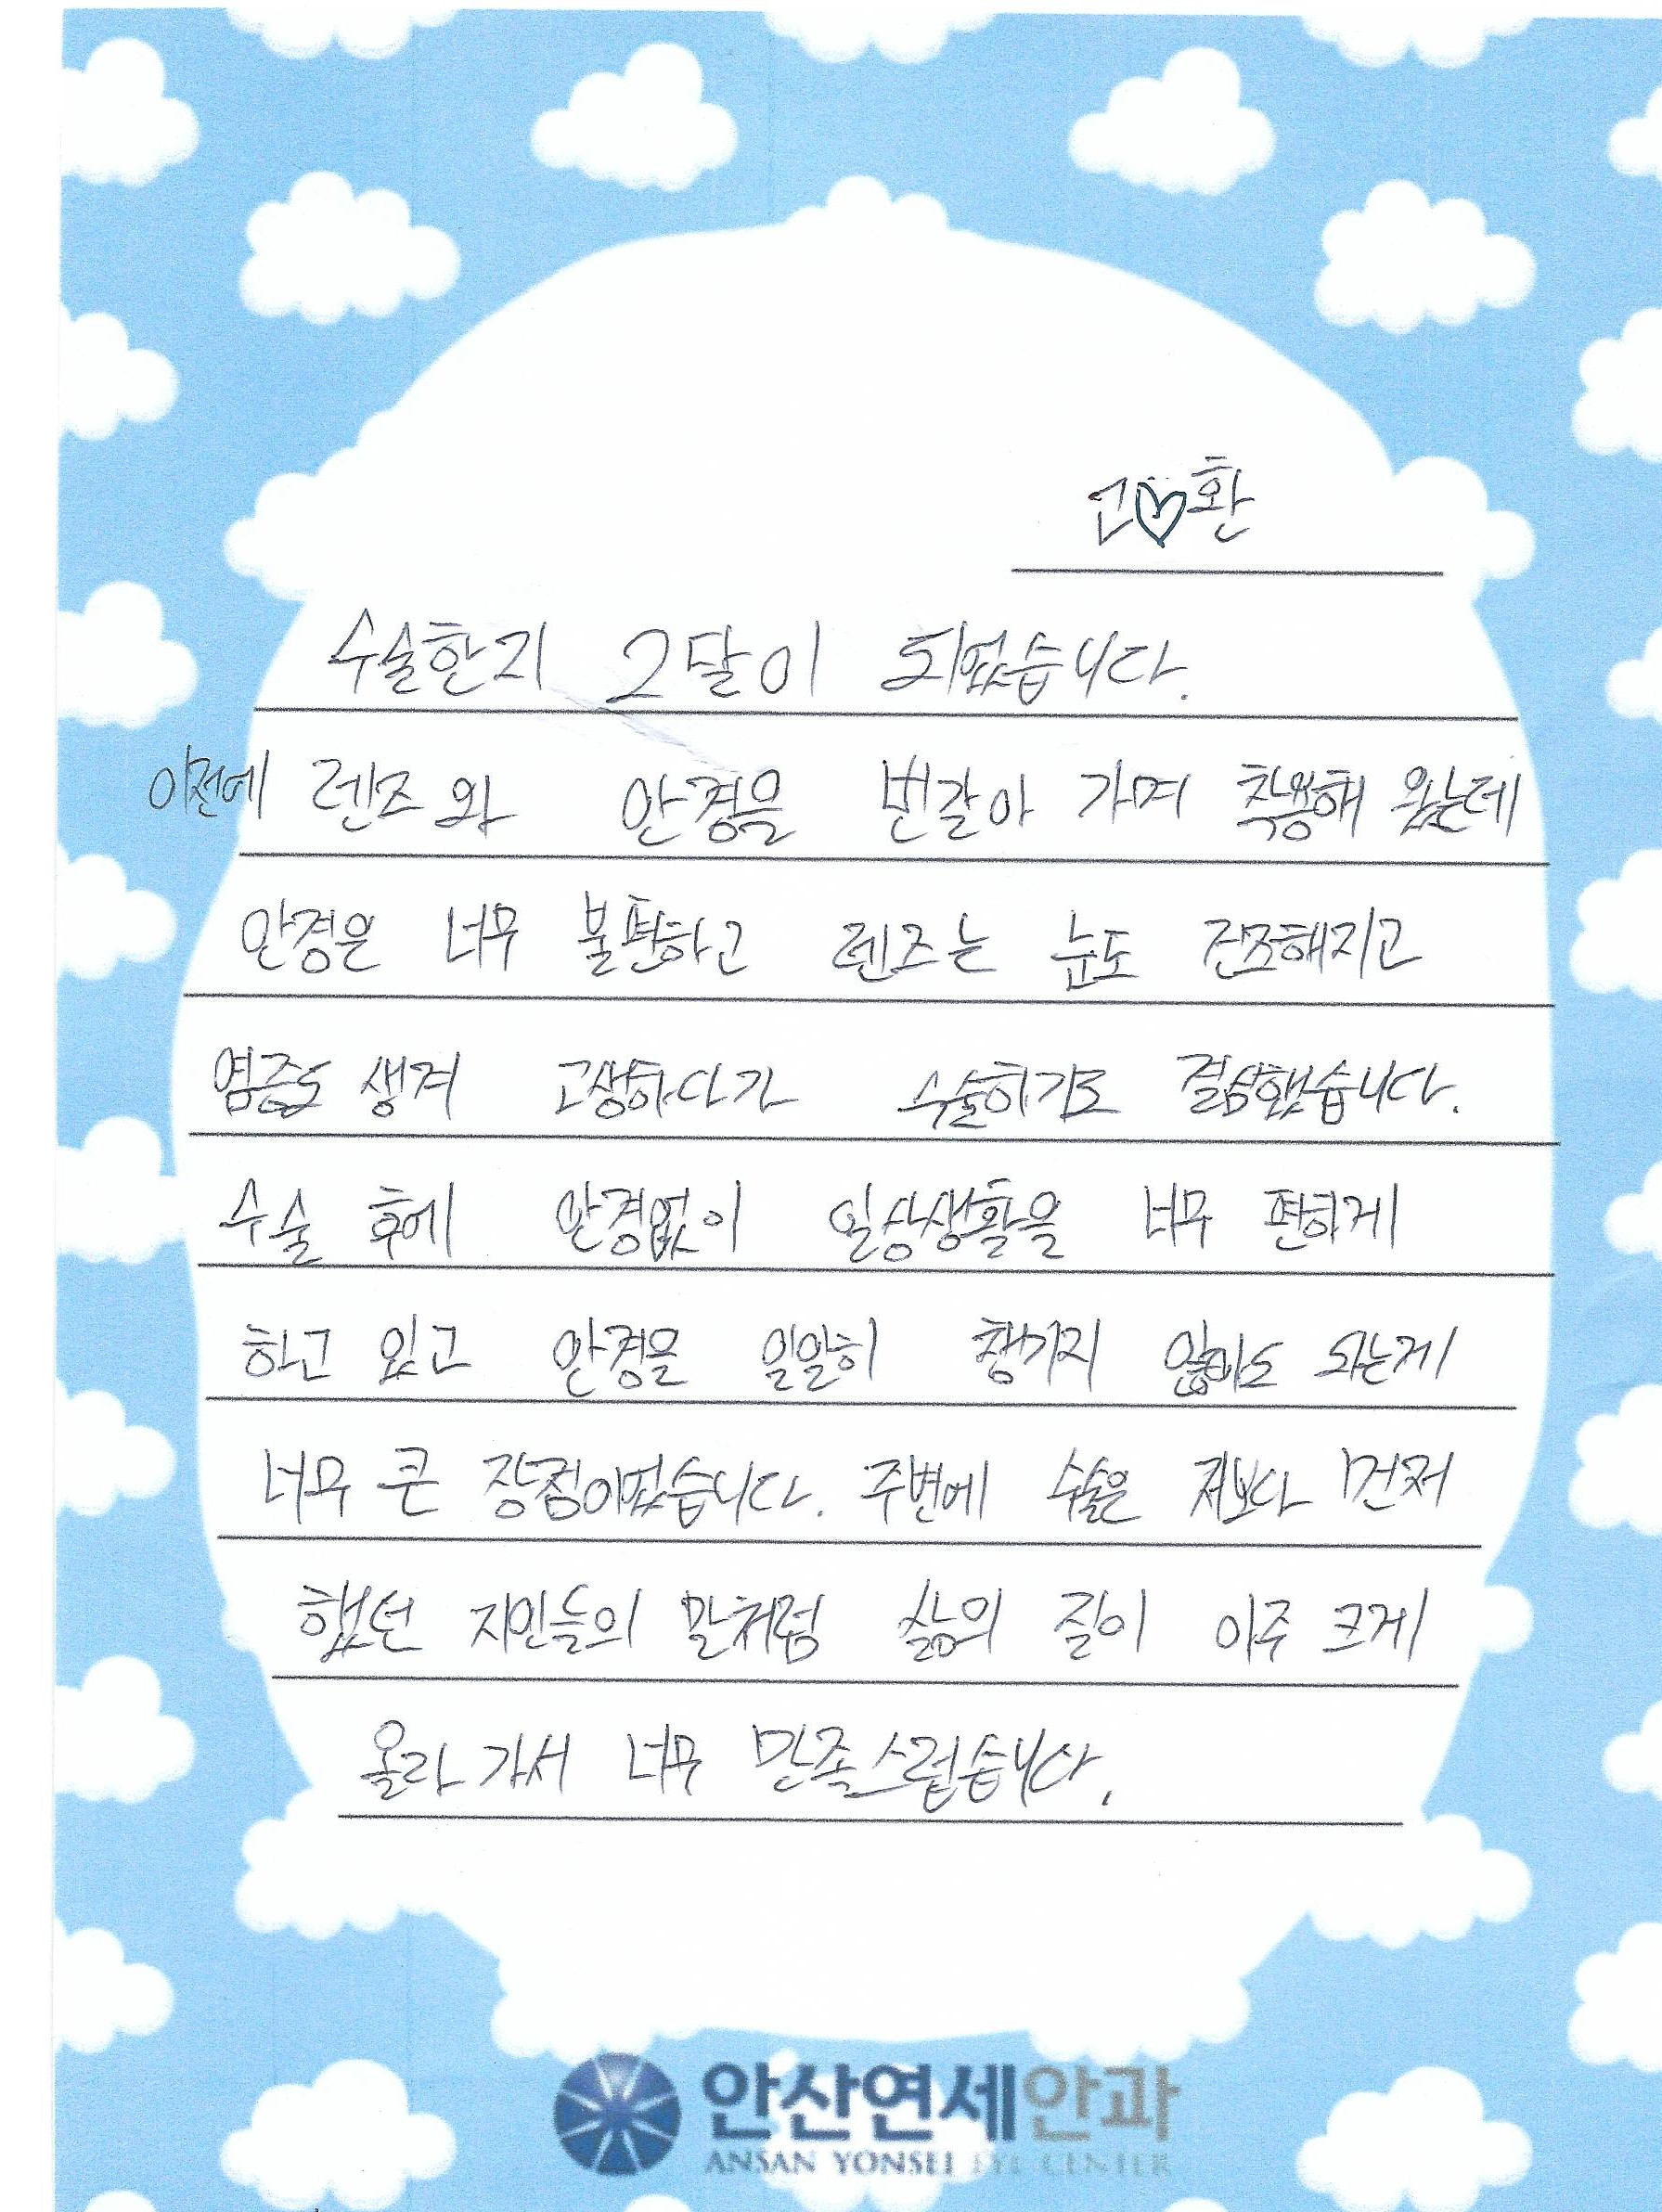 고♡환
수술한지 2달이 되었습니다.
이전에 렌즈와 안경을 번갈아 가며 착용해 왔는데
안경은 너무 불편하고 렌즈는 눈도 건조해지고
염증도 생겨 고생하다가 수술하기로 결심했습니다.
수술 후에 안경없이 일상생활을 너무 편하게
하고 있고 안경을 일일히 챙기지 않아도 되는게
너무 큰 장점이었습니다. 주변에 수술은 저보다 먼저
했던 지인들의 말처럼 삶의 질이 아주 크게
올라가서 너무 만족스럽습니다.
안산연세안과
ANSAN YONSEI EYE CENTER